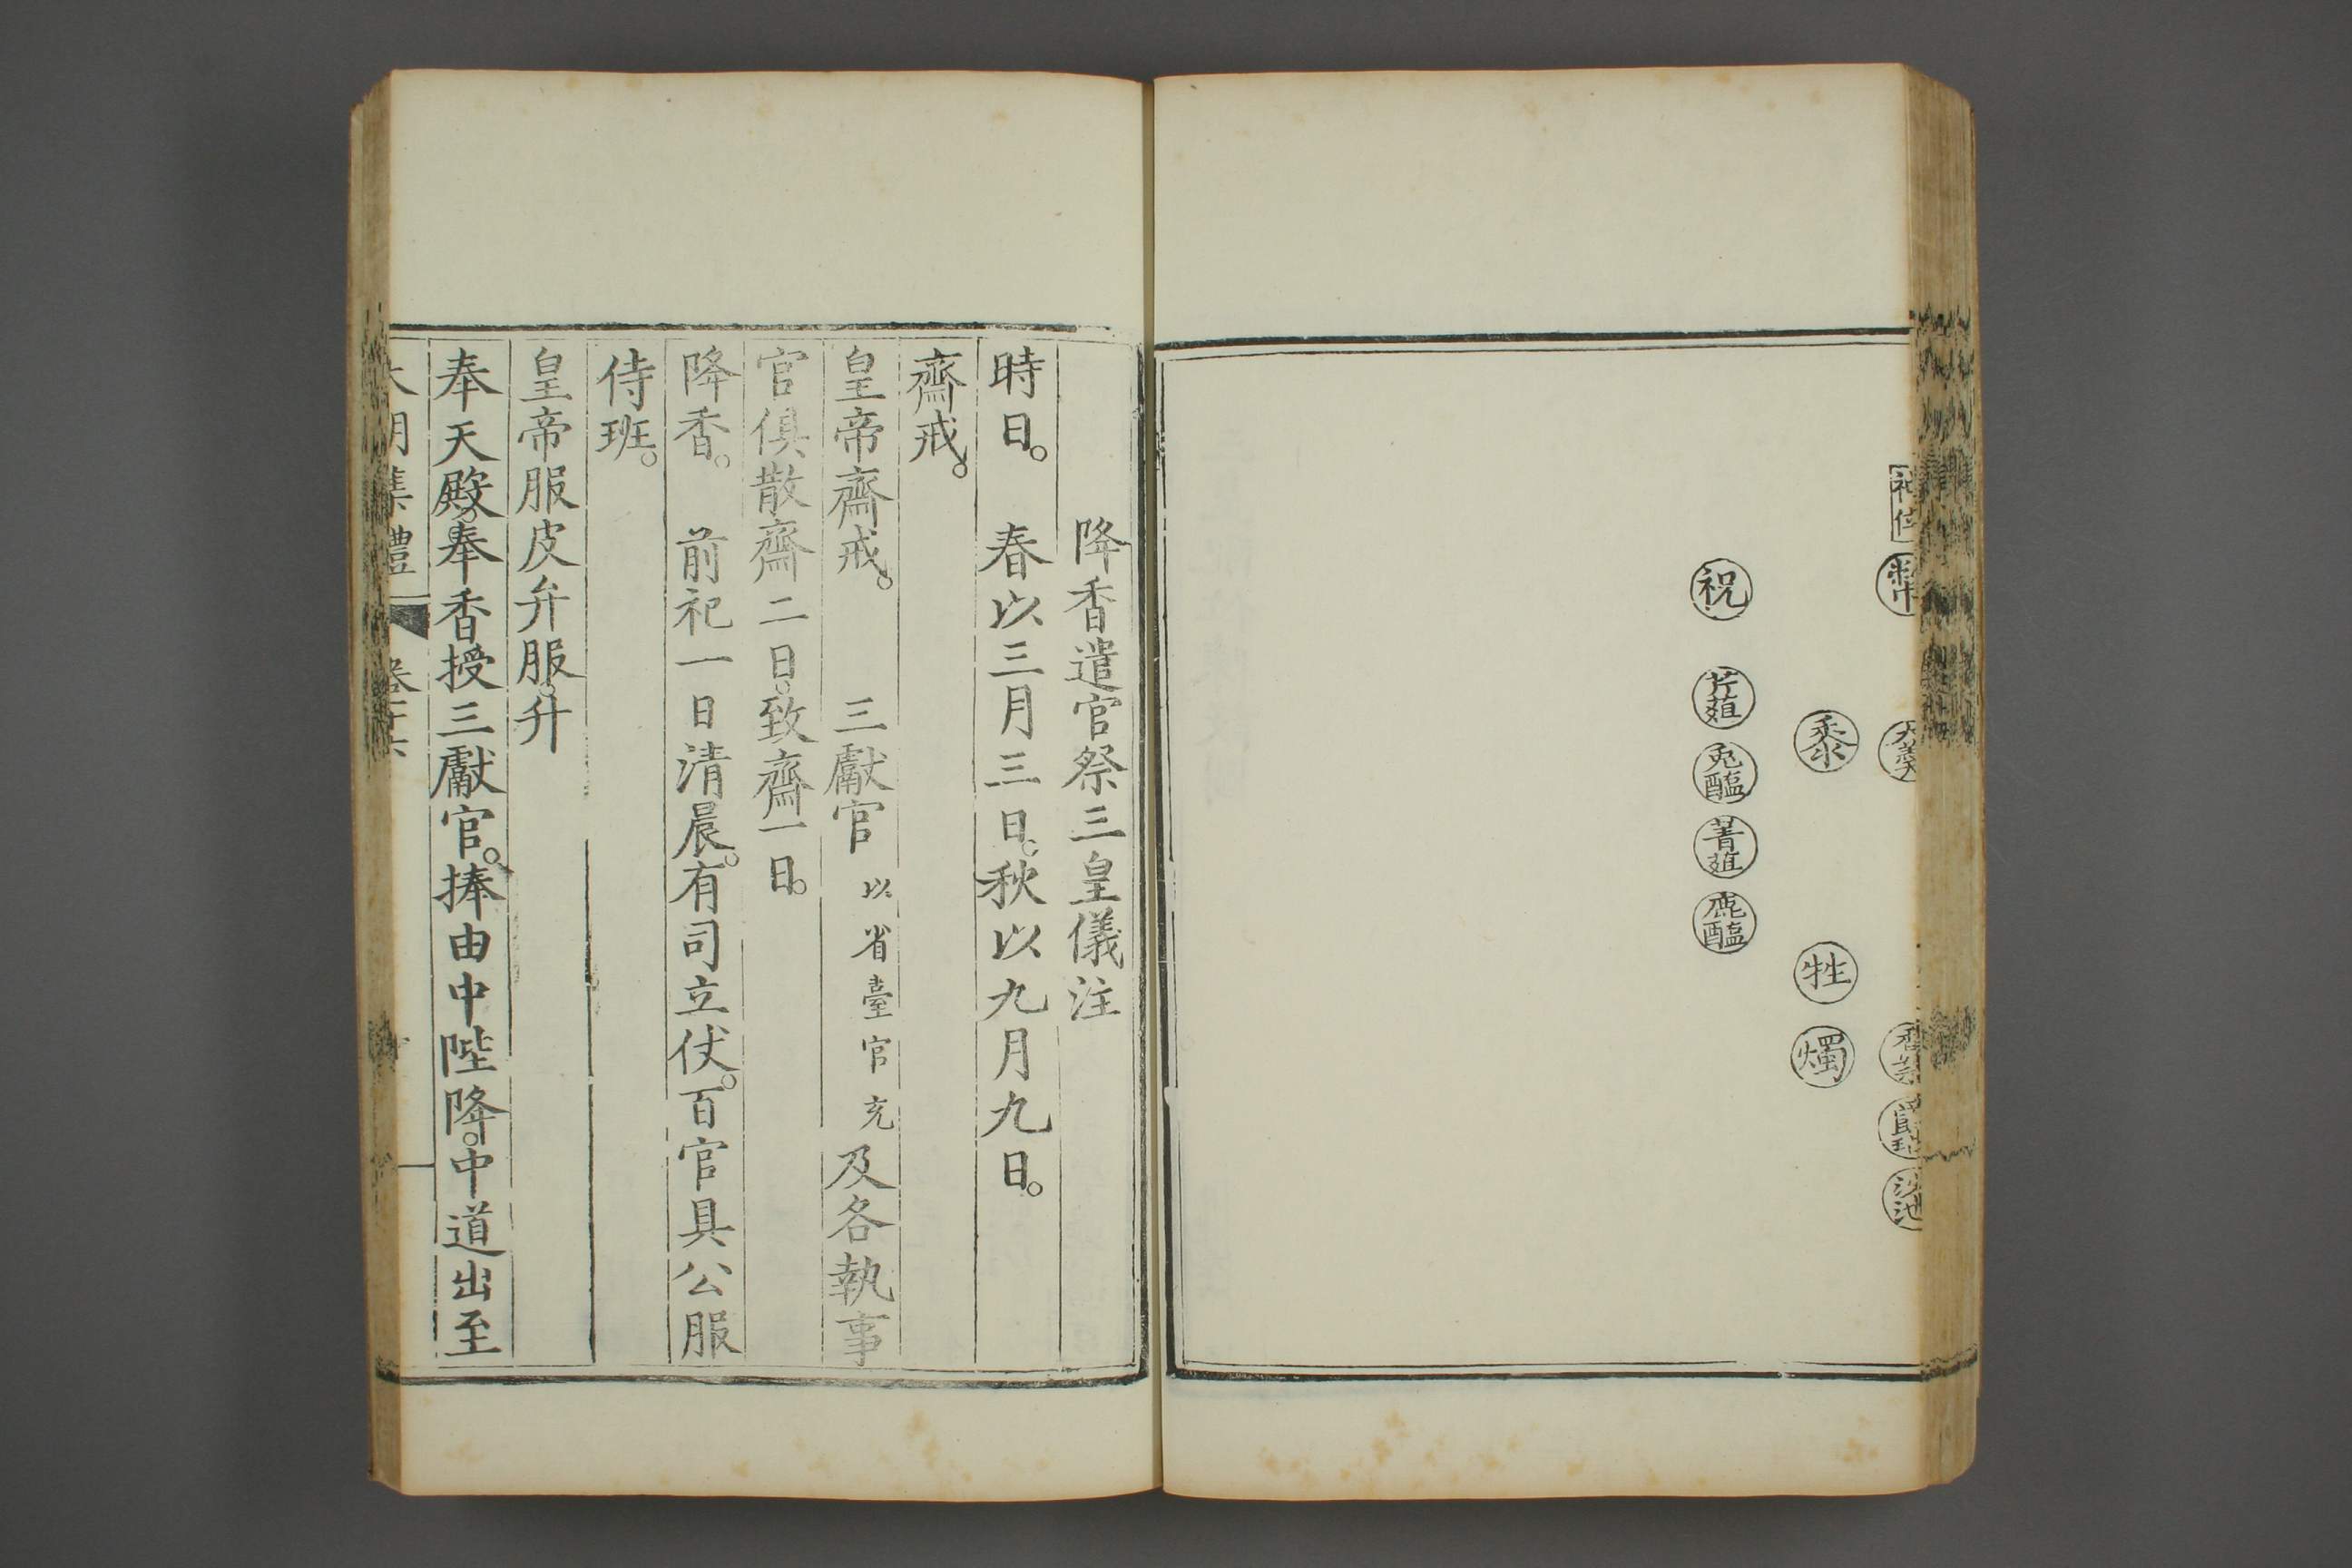 神位
幣
黍
牲
燭
祝
芹菹
兎醢
菁菹
鹿醢
降香遣官祭三皇儀注
時日。　春以三月三日。秋以九月九日。
齋戒。
皇帝齋戒。　三獻官以省臺官充及各執事
官俱散齋二日。致齋一日。
降香。　前祀一日清晨。有司立仗。百官具公服
侍班。
皇帝服皮弁服。升
奉天殿。奉香授三獻官。捧由中陛降。中道出至
大明集禮　卷十六